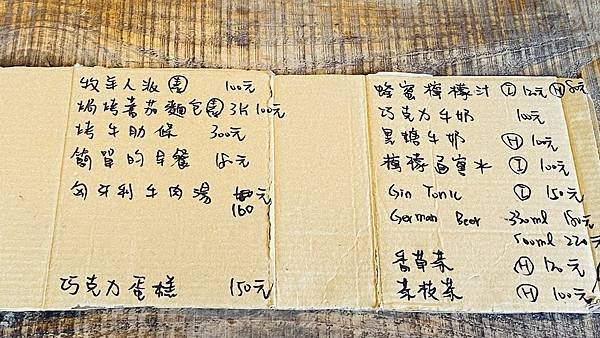 牧羊人派 素 100元
焗烤蕃茄麵包 素 3片 100元
烤牛肋條 300元
簡單的早餐
匈牙利牛肉湯 元
160
巧克力蛋糕 150元
蜂蜜檸檬汁 I 120元 H 80元
巧克力牛奶 100元
黑糖牛奶 H 100元
檸檬 水 I 100元
Gin Tonic I 150元
German Beer 330ml 180元
500ml 220元
香草茶 H 120元
茶 H 100元